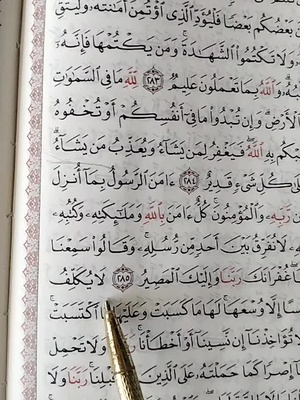 بَعْضُكُم بَعْضًا فَلْيُؤَدِّ ٱلَّذِى ٱؤْتُمِنَ أَمَٰنَتَهُۥ وَلْيَتَّقِ
وَلَا تَكْتُمُوا۟ ٱلشَّهَٰدَةَ ۚ وَمَن يَكْتُمْهَا فَإِنَّهُۥٓ
وَٱللَّهُ بِمَا تَعْمَلُونَ عَلِيمٌ ٢٨٣ لِّلَّهِ مَا فِى ٱلسَّمَٰوَٰتِ
ٱلْأَرْضِ ۗ وَإِن تُبْدُوا۟ مَا فِىٓ أَنفُسِكُمْ أَوْ تُخْفُوهُ
بِهِ ٱللَّهُ ۖ فَيَغْفِرُ لِمَن يَشَآءُ وَيُعَذِّبُ مَن يَشَآءُ ۗ
كُلِّ شَىْءٍ قَدِيرٌ ٢٨٤ ءَامَنَ ٱلرَّسُولُ بِمَآ أُنزِلَ
رَّبِّهِۦ وَٱلْمُؤْمِنُونَ ۚ كُلٌّ ءَامَنَ بِٱللَّهِ وَمَلَٰٓئِكَتِهِۦ وَكُتُبِهِۦ
لَا نُفَرِّقُ بَيْنَ أَحَدٍ مِّن رُّسُلِهِۦ ۚ وَقَالُوا۟ سَمِعْنَا
غُفْرَانَكَ رَبَّنَا وَإِلَيْكَ ٱلْمَصِيرُ ٢٨٥ لَا يُكَلِّفُ
إِلَّا وُسْعَهَا ۚ لَهَا مَا كَسَبَتْ وَعَلَيْهَا مَا ٱكْتَسَبَتْ ۗ
لَا تُؤَاخِذْنَآ إِن نَّسِينَآ أَوْ أَخْطَأْنَا ۚ رَبَّنَا وَلَا تَحْمِلْ
إِصْرًا كَمَا حَمَلْتَهُۥ عَلَى ٱلَّذِينَ مِن قَبْلِنَا ۚ رَبَّنَا وَلَا